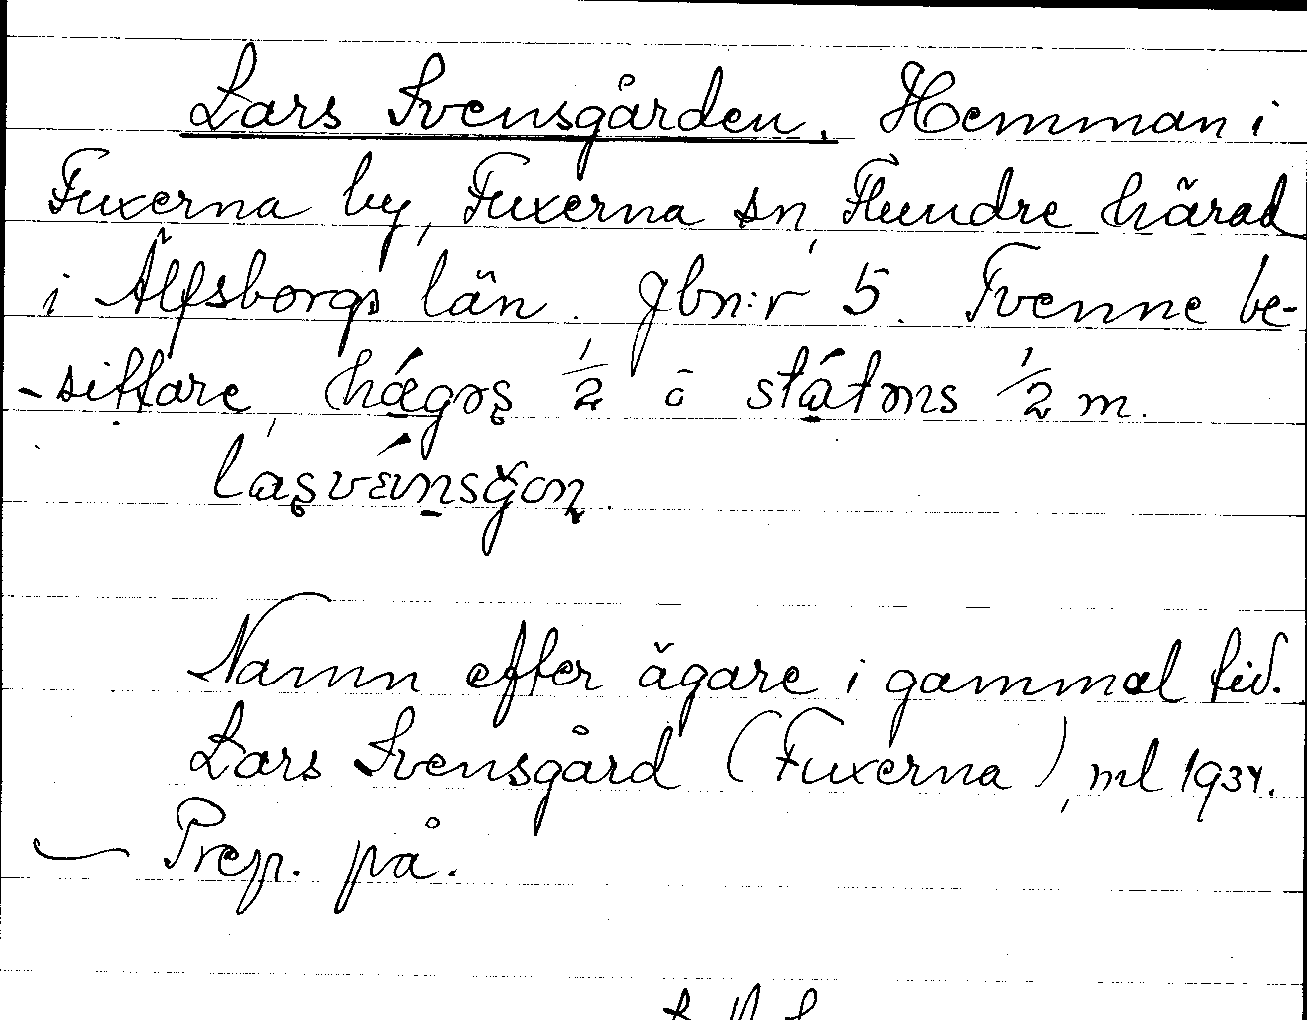 Lars Svensgården. Hemman i
Fuxerna by, Fuxerna sn, Flundre härad
i Älfsborgs län. Jbn:r 5. Tvenne be-
-sittare, hǽgəş 1/2 å státəns 1/2 m.
laşvǽnsgɔn.
Namn efter ägare i gammal tid.
Lars Svensgård (Fuxerna), ml 1934.
Prep. på.